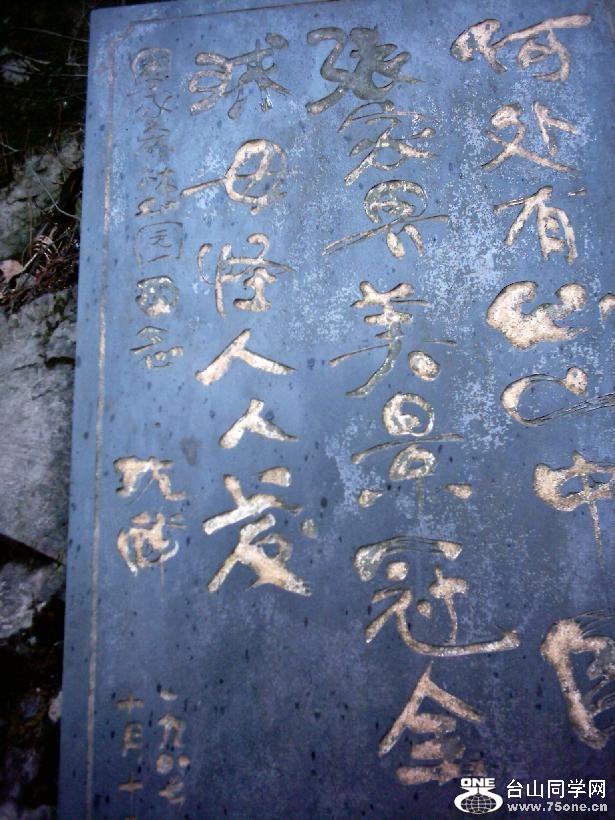 何处有仙山中国
张家界美景冠全
球毋怪人人爱
国家森林园留念
一九八
十月十
台山同学网
ONE
www.75one.cn